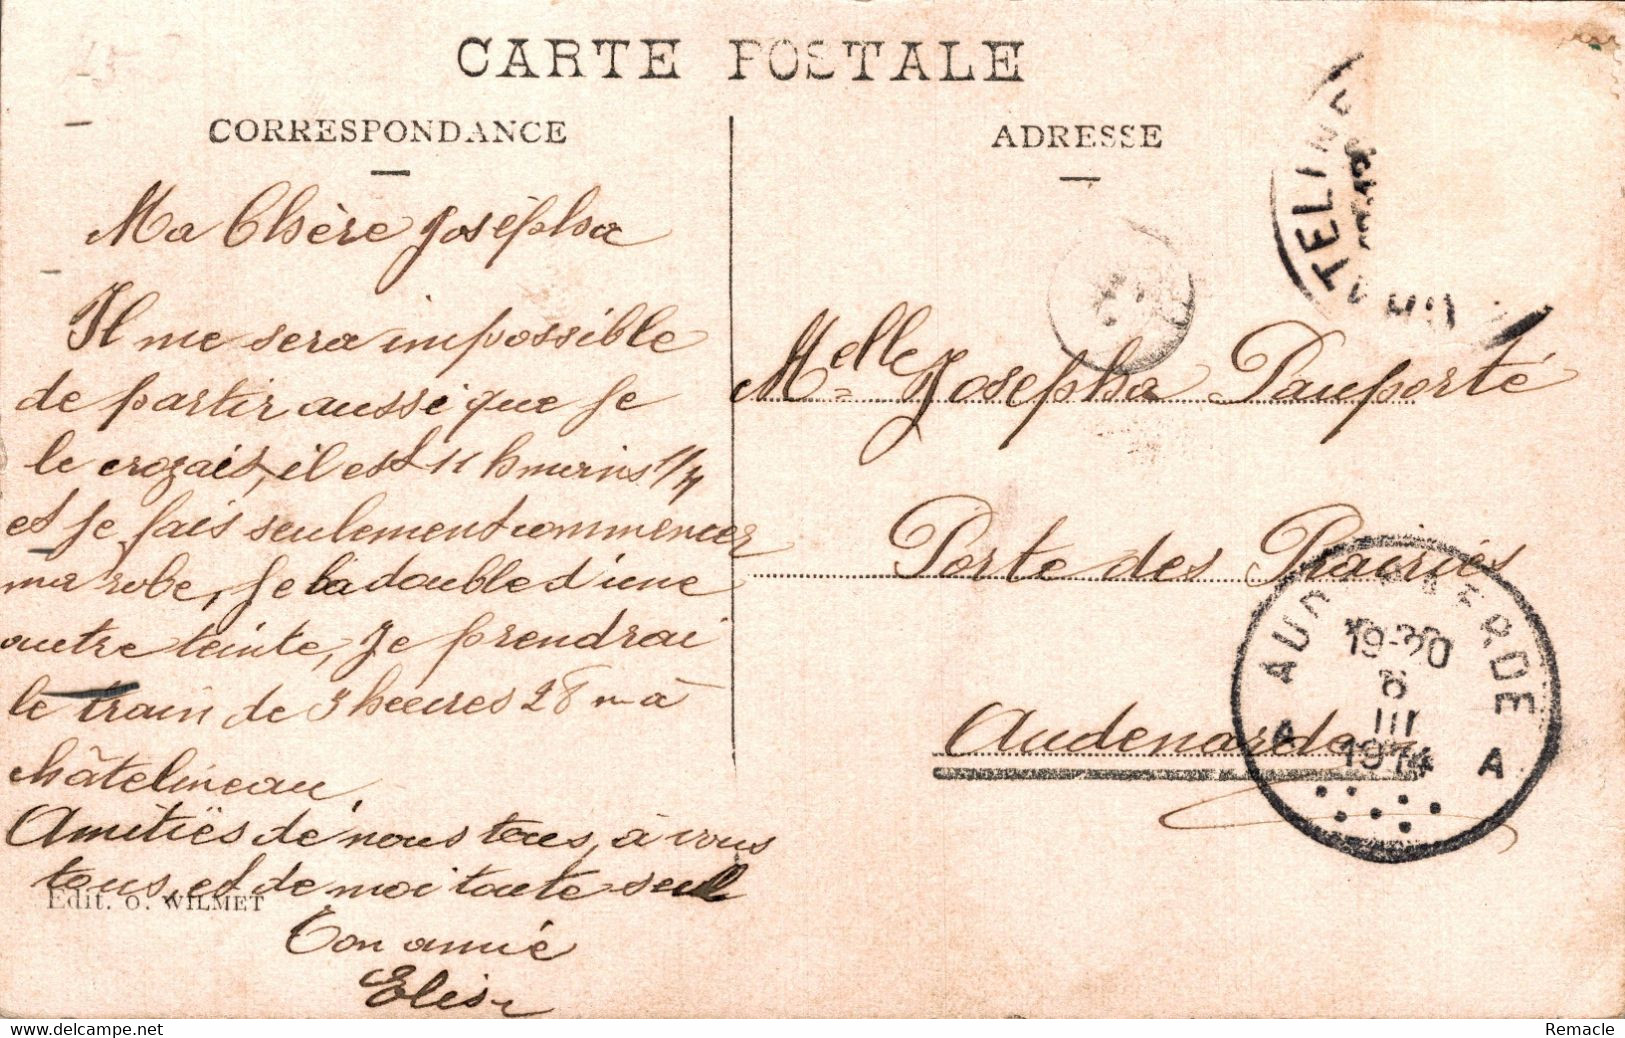 CARTE POSTALE
CORRESPONDANCE
ADRESSE
Ma Chère Joséphа
Il me sera impossible
de partir aussi que je
le crozais, il est 11 h moins 1/4
et je fais seulement commencer
ma robe, je la double d'une
autre teinte, je prendrai
le train de 3 heures 28 m à
châtelineau
Amitiés de nous tous, à vous
tous, et de moi toute seul
Ton amie
Elise
Edit. O. WILMET
Melle Josepha Pauporté
Porte des Prairies
Audenarde
AUDENAERDE
19-20
III
1914
A A
Remacle